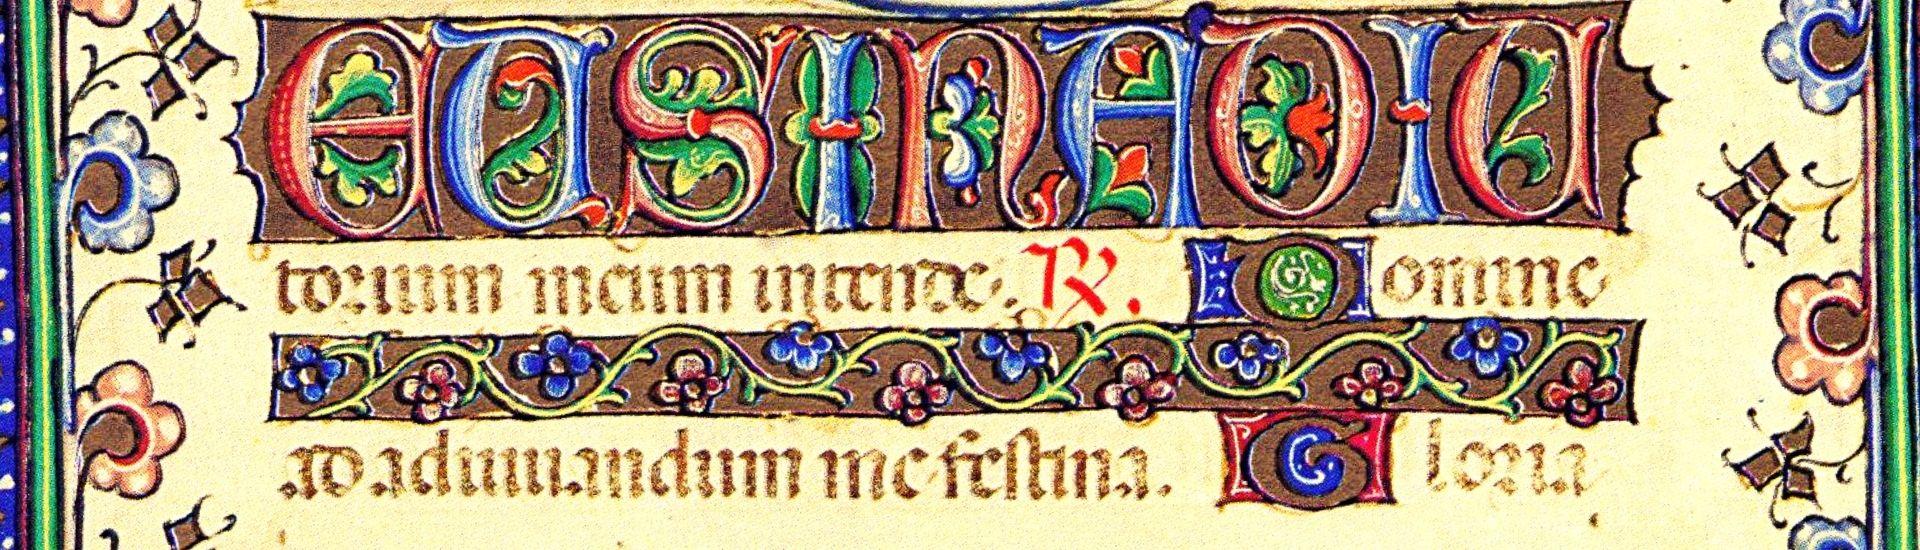 EUSINADIU
torium meum intende. R.
Domine
ad adiuuandum me festina. Gloria